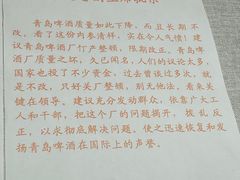 青岛啤酒质量如此下降，而且长期不
改。看了这份内参清样，实在令人气愤！建
议青岛啤酒厂停产整顿，限期改正。青岛啤
酒厂质量之坏，久已闻名，人们的议论太多，
国家也投了不少资金。过去曾谈过多次，就
是不改，只好关厂整顿，别无他法，看来关
键在领导。建议充分发动群众，依靠广大工
人和干部，把这个厂的问题揭开，拨乱反
正，以求彻底解决问题，使之迅速恢复和发
扬青岛啤酒在国际上的声誉。